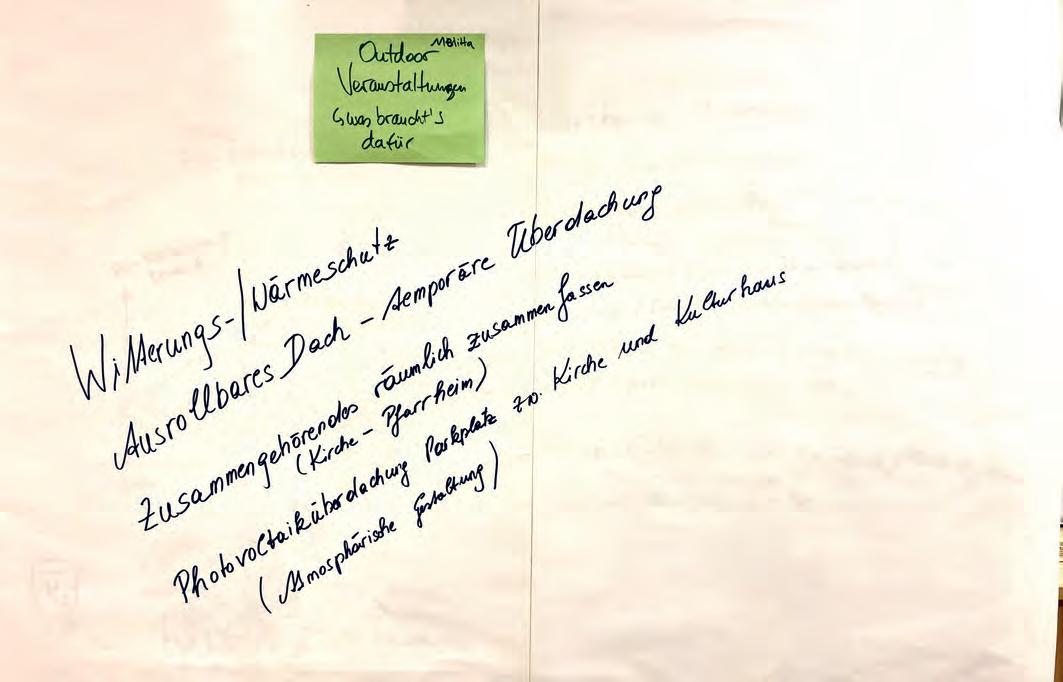 Melitta
Outdoor
Veranstaltungen
↳ was braucht's
dafür
Witterungs-/Wärmeschutz
Ausrollbares Dach - temporäre Überdachung
Zusammengehörendes räumlich zusammenfassen
(Kirche - Pfarrheim)
Photovoltaiküberdachung Parkplatz zw. Kirche und Kulturhaus
(Atmosphärische Gestaltung)